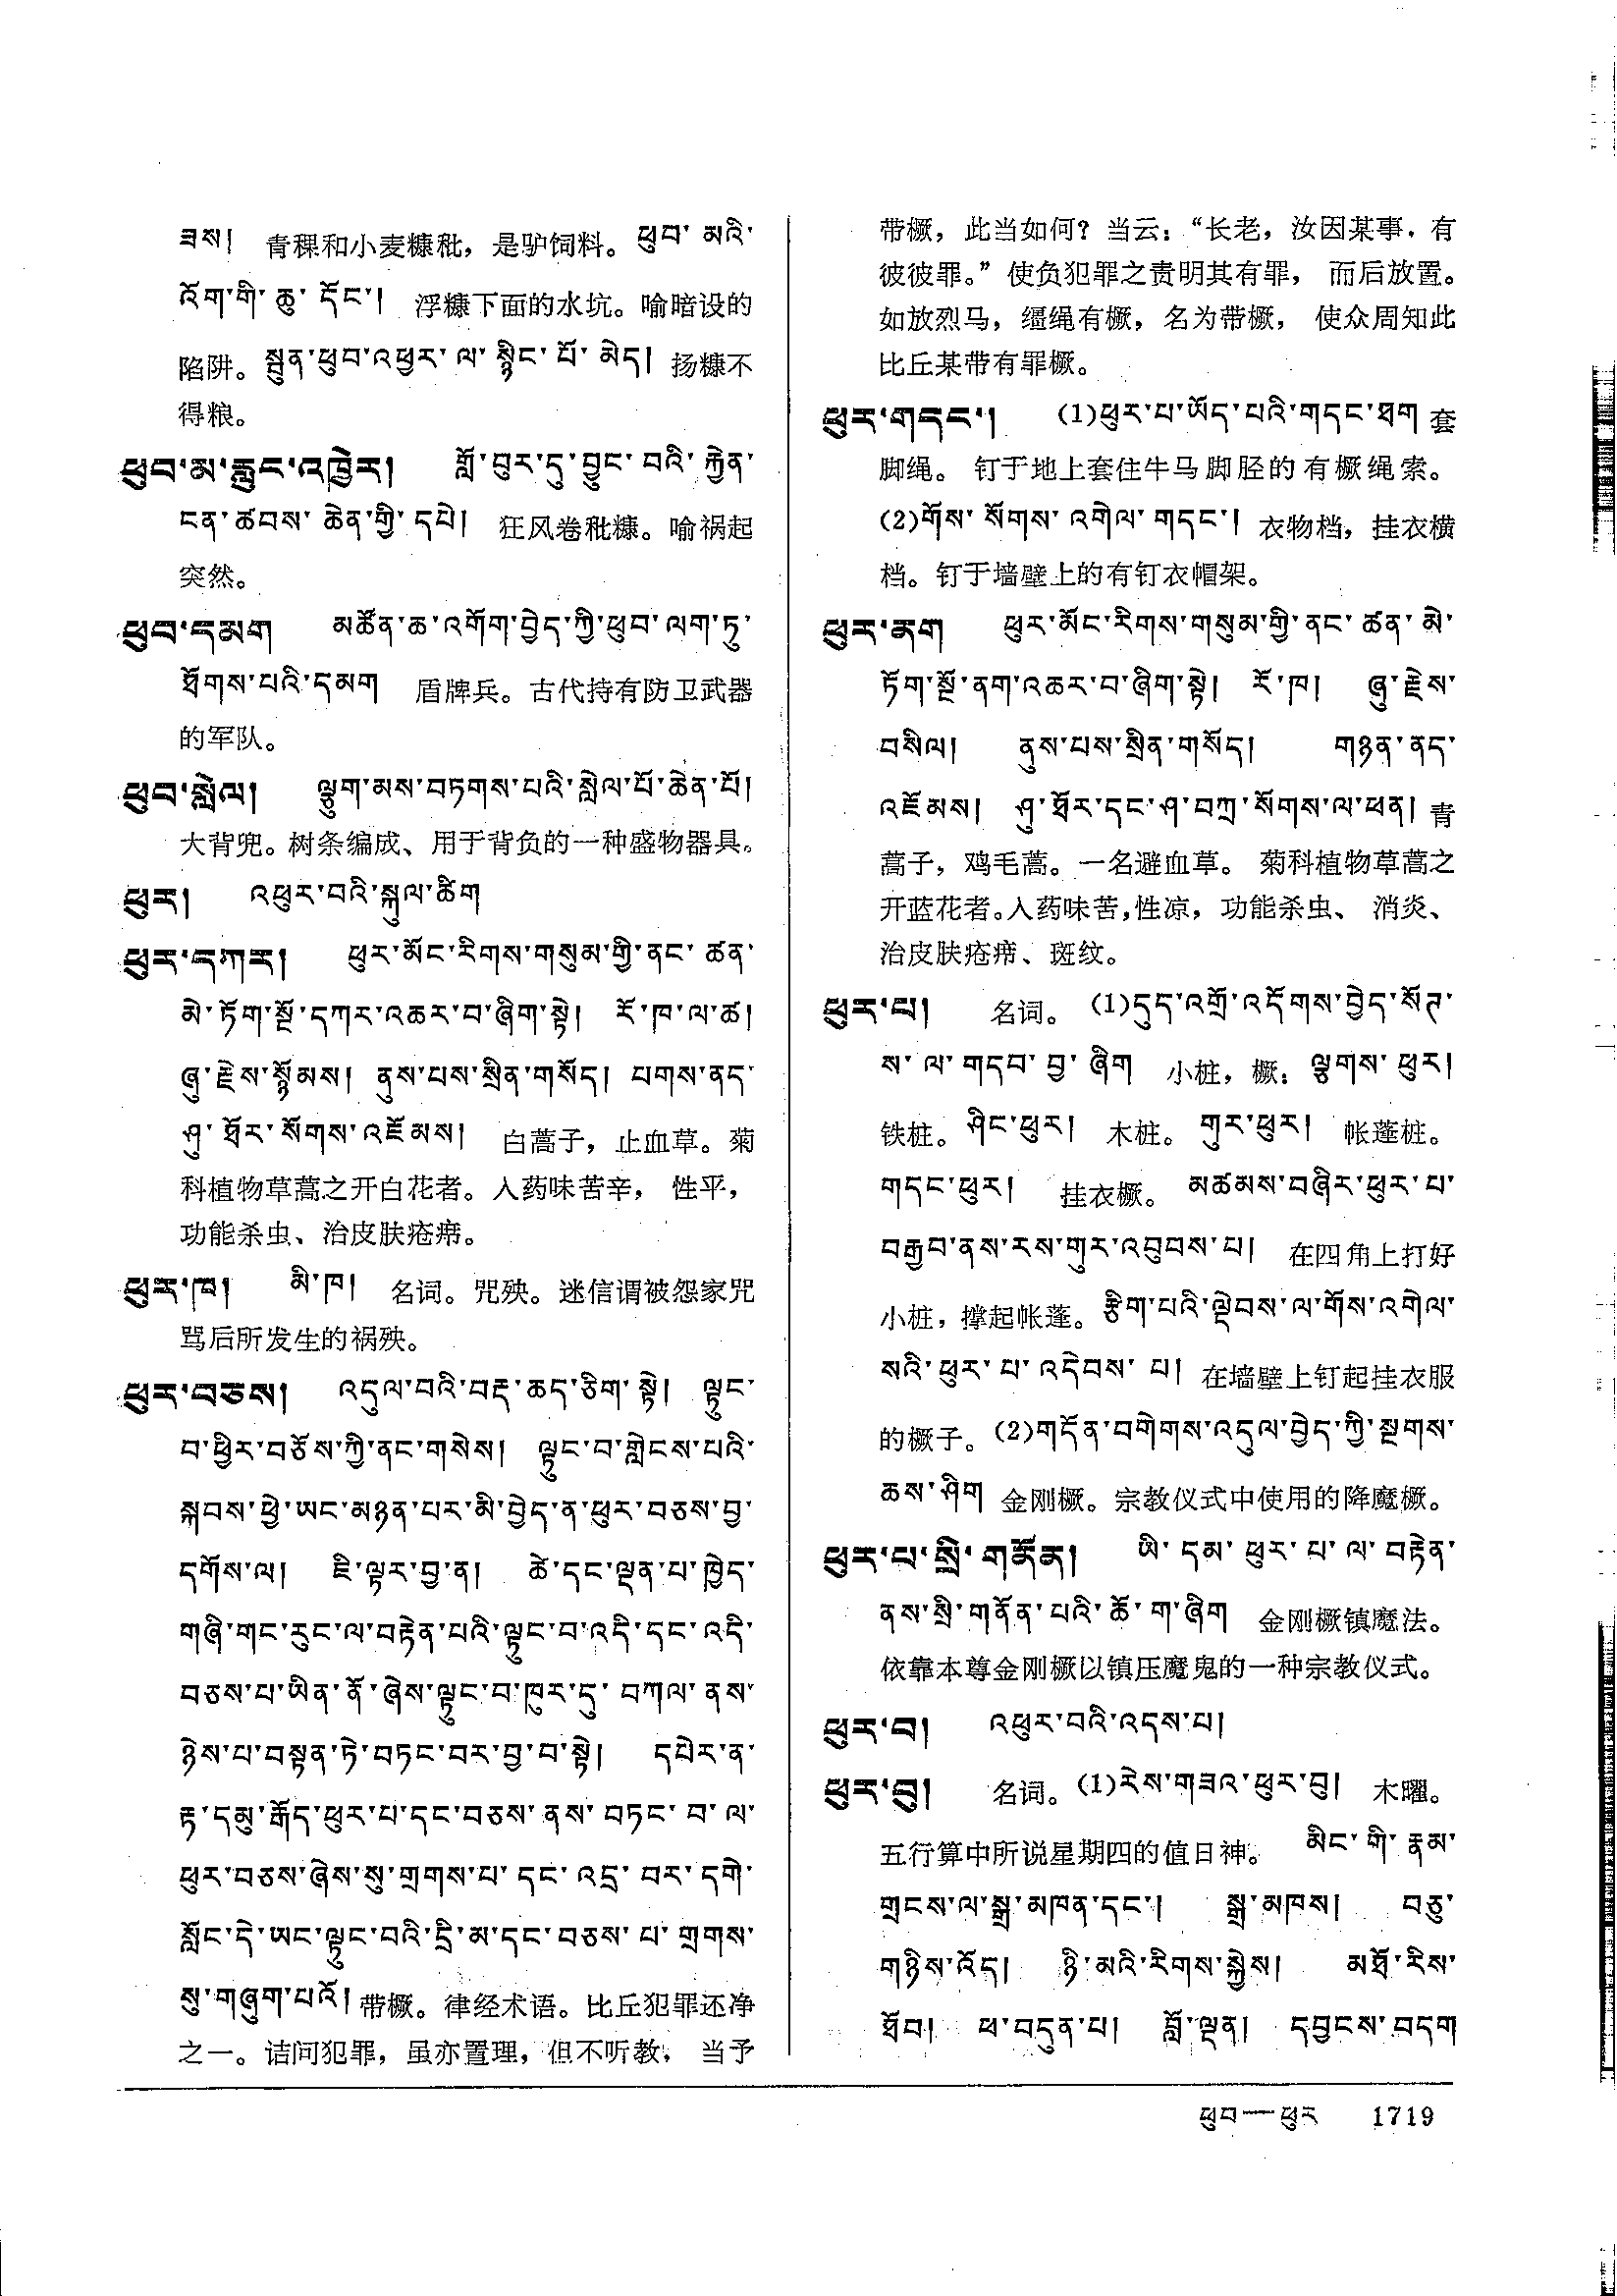 ཟས། 青稞和小麦糠秕，是驴饲料。ཕུབ་མའི་
འོག་གི་ཆུ་དོང་། 浮糠下面的水坑。喻暗设的
陷阱。སྦུན་ཕུབ་འཕྱར་ལ་སྙིང་པོ་མེད། 扬糠不
得粮。
ཕུབ་མ་རླུང་འཁྱེར། གློ་བུར་དུ་བྱུང་བའི་རྐྱེན་
ངན་ཚབས་ཆེན་གྱི་དཔེ། 狂风卷秕糠。喻祸起
突然。
ཕུབ་དམག མཚོན་ཆ་འགོག་བྱེད་ཀྱི་ཕུབ་ལག་ཏུ་
ཐོགས་པའི་དམག 盾牌兵。古代持有防卫武器
的军队。
ཕུབ་སླེལ། ལྕུག་མས་བཏགས་པའི་སླེལ་པོ་ཆེན་པོ།
大背兜。树条编成、用于背负的一种盛物器具。
ཕུར། འཕུར་བའི་སྐུལ་ཚིག
ཕུར་དཀར། ཕུར་མོང་རིགས་གསུམ་གྱི་ནང་ཚན་
མེ་ཏོག་སྔོ་དཀར་འཆར་བ་ཞིག་སྟེ། རོ་ཁ་ལ་ཚ།
ཞུ་རྗེས་སྙོམས། ནུས་པས་སྲིན་གསོད། པགས་ནད་
ཤུ་ཐོར་སོགས་འཇོམས། 白蒿子，止血草。菊
科植物草蒿之开白花者。入药味苦辛，性平，
功能杀虫、治皮肤疮疿。
ཕུར་ཁ། མི་ཁ། 名词。咒殃。迷信谓被怨家咒
骂后所发生的祸殃。
ཕུར་བཅས། འདུལ་བའི་བརྡ་ཆད་ཅིག་སྟེ། ལྟུང་
བ་ཕྱིར་བཅོས་ཀྱི་ནང་གསེས། ལྟུང་བ་གླེངས་པའི་
སྐབས་ཕྱེ་ཡང་མཉན་པར་མི་བྱེད་ན་ཕུར་བཅས་བྱ་
དགོས་ལ། ཇི་ལྟར་བྱ་ན། ཚེ་དང་ལྡན་པ་ཁྱེད་
གཞི་གང་རུང་ལ་བརྟེན་པའི་ལྟུང་བ་འདི་དང་འདི་
བཅས་པ་ཡིན་ནོ་ཞེས་ལྟུང་བ་ཁུར་དུ་བཀལ་ནས་
ཉེས་པ་བསྟན་ཏེ་བཏང་བར་བྱ་བ་སྟེ། དཔེར་ན་
རྟ་དམུ་རྒོད་ཕུར་པ་དང་བཅས་ནས་བཏང་བ་ལ་
ཕུར་བཅས་ཞེས་སུ་གྲགས་པ་དང་འདྲ་བར་དགེ་
སློང་དེ་ཡང་ལྟུང་བའི་དྲི་མ་དང་བཅས་པ་གྲགས་
སུ་གཞུག་པའོ། 带橛。律经术语。比丘犯罪还净
之一。诘问犯罪，虽亦置理，但不听教，当予
带橛，此当如何？当云：“长老，汝因某事，有
彼彼罪。”使负犯罪之责明其有罪，而后放置。
如放烈马，缰绳有橛，名为带橛，使众周知此
比丘某带有罪橛。
ཕུར་གདང་། (1)ཕུར་པ་ཡོད་པའི་གདང་ཐག 套
脚绳。钉于地上套住牛马脚胫的有橛绳索。
(2)གོས་སོགས་འགེལ་གདང་། 衣物档，挂衣横
档。钉于墙壁上的有钉衣帽架。
ཕུར་ནག ཕུར་མོང་རིགས་གསུམ་གྱི་ནང་ཚན་མེ་
ཏོག་སྔོ་ནག་འཆར་བ་ཞིག་སྟེ། རོ་ཁ། ཞུ་རྗེས་
བསིལ། ནུས་པས་སྲིན་གསོད། གཉན་ནད་
འཇོམས། ཤུ་ཐོར་དང་ཤ་བཀྲ་སོགས་ལ་ཕན། 青
蒿子，鸡毛蒿。一名避血草。菊科植物草蒿之
开蓝花者。入药味苦，性凉，功能杀虫、消炎、
治皮肤疮疿、斑纹。
ཕུར་པ། 名词。(1)དུད་འགྲོ་འདོགས་བྱེད་སོཊ་
ས་ལ་གདབ་བྱ་ཞིག 小桩，橛：ལྕགས་ཕུར།
铁桩。ཤིང་ཕུར། 木桩。གུར་ཕུར། 帐蓬桩。
གདང་ཕུར། 挂衣橛。མཚམས་བཞིར་ཕུར་པ་
བརྒྱབ་ནས་རས་གུར་འབུབས་པ། 在四角上打好
小桩，撑起帐蓬。རྩིག་པའི་ལྡེབས་ལ་གོས་འགེལ་
སའི་ཕུར་པ་འདེབས་པ། 在墙壁上钉起挂衣服
的橛子。(2)གདོན་བགེགས་འདུལ་བྱེད་ཀྱི་སྔགས་
ཆས་ཤིག 金刚橛。宗教仪式中使用的降魔橛。
ཕུར་པ་སྲི་གནོན། ཡི་དམ་ཕུར་པ་ལ་བརྟེན་
ནས་སྲི་གནོན་པའི་ཆོ་ག་ཞིག 金刚橛镇魔法。
依靠本尊金刚橛以镇压魔鬼的一种宗教仪式。
ཕུར་བ། འཕུར་བའི་འདས་པ།
ཕུར་བུ། 名词。(1)རེས་གཟའ་ཕུར་བུ། 木曜。
五行算中所说星期四的值日神。མིང་གི་རྣམ་
གྲངས་ལ་སྒྲ་མཁན་དང་། སྒྲ་མཁས། བཅུ་
གཉིས་འོད། ཉི་མའི་རིགས་སྐྱེས། མཐོ་རིས་
ཐོབ། ཕ་བདུན་པ། བློ་ལྡན། དབྱངས་བདག
ཕུབ—ཕུར 1719